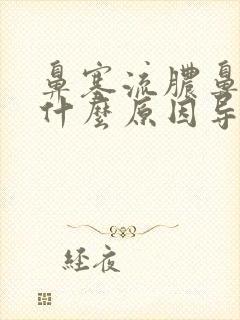 鼻塞流膿鼻
什麼原因导
经夜